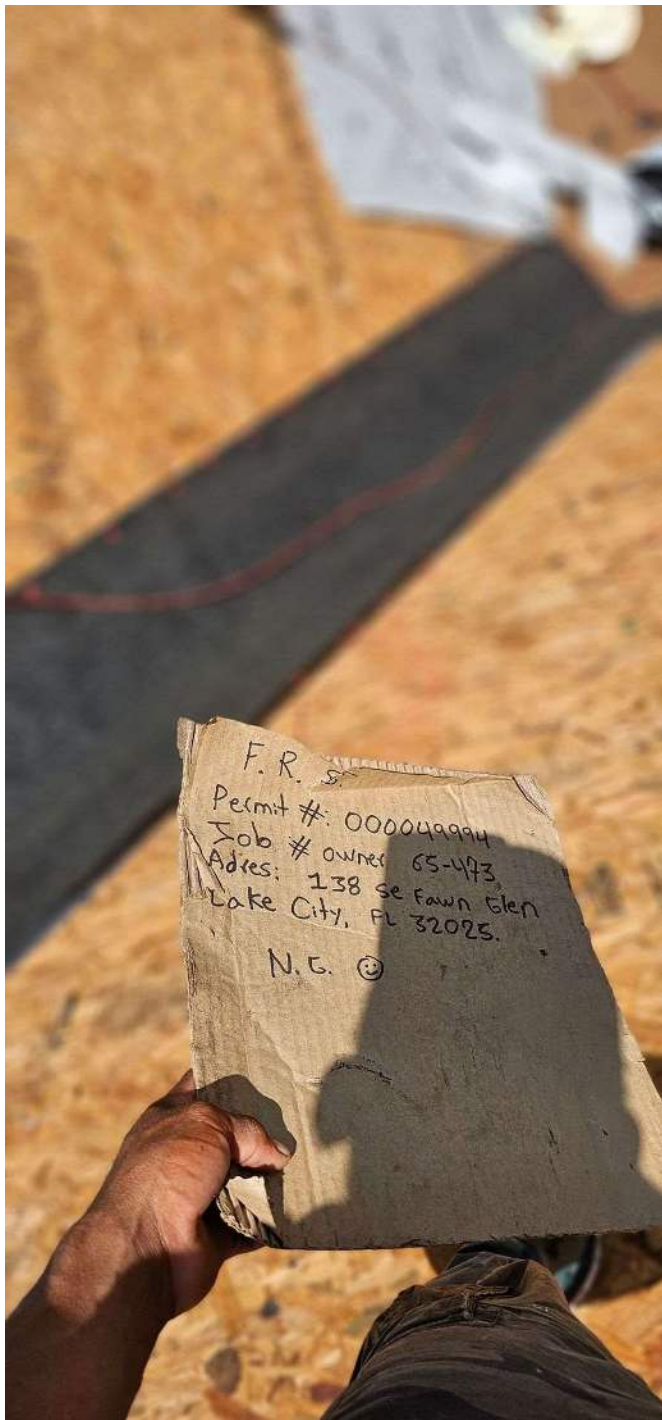 F. R. S.
Permit #: 000049994
Job # owner 65-473
Adres: 138 se Fawn Glen
Lake City, FL 32025.
N.G. ☺